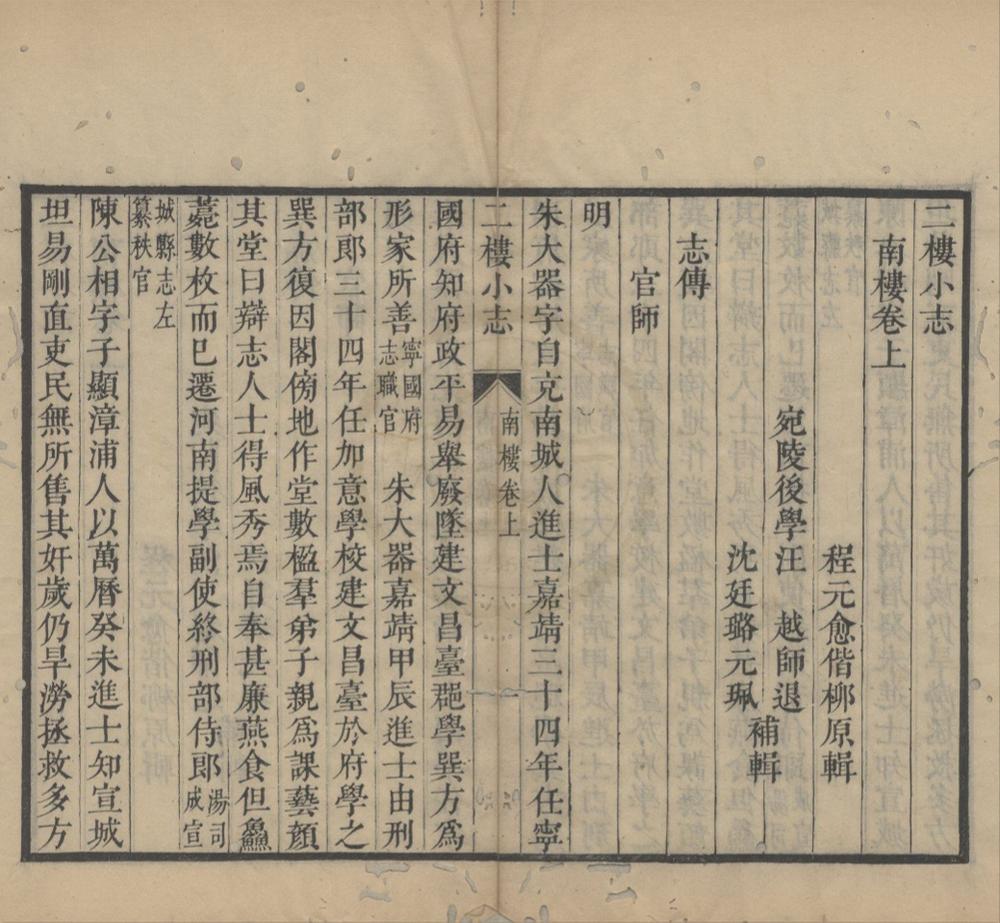 二樓小志
南樓卷上
程元愈偕柳原輯
宛陵後學汪　越師退
沈廷璐元珮
補輯
志傳
官師
明
朱大器字自充南城人進士嘉靖三十四年任寧
二樓小志　南樓卷上
國府知府政平易舉廢墜建文昌臺郡學巽方爲
形家所善寧國府志職官　朱大器嘉靖甲辰進士由刑
部郎三十四年任加意學校建文昌臺於府學之
巽方復因閣傍地作堂數楹羣弟子親爲課藝顏
其堂曰辯志人士得風秀焉自奉甚廉燕食但鱻
薧數枚而已遷河南提學副使終刑部侍郎湯司成宣
城縣志左纂秩官
陳公相字子顯漳浦人以萬曆癸未進士知宣城
坦易剛直吏民無所售其奸歲仍旱澇拯救多方